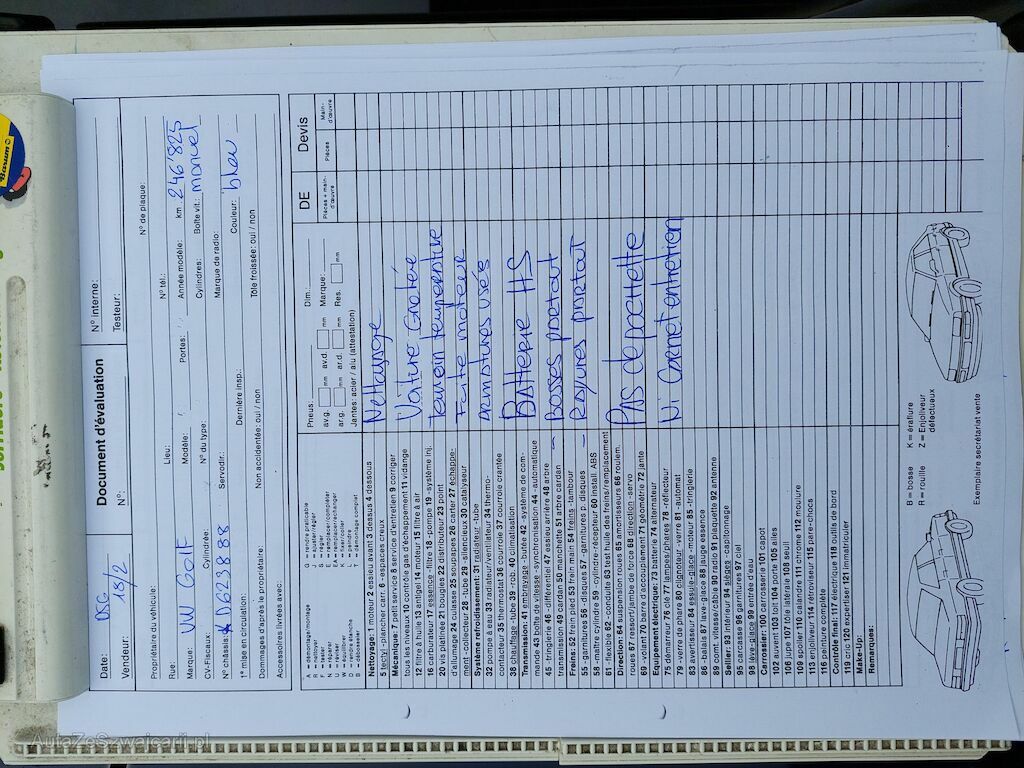 Document d'évaluation
N° interne:
Date: DSG
N°:
Testeur:
Vendeur: 18/2
Propriétaire du véhicule:
N° de plaque:
Rue:
Lieu:
N° tél.:
Marque: VW Golf
Modèle:
Portes:
Année modèle:
km 246'825
CV-Fiscaux:
Cylindrée:
N° du type:
Cylindres:
Boîte vit.: manuel
N° châssis D623888
Servodir.
Marque de radio:
1re mise en circulation:
Dernière insp.:
Couleur: bleu
Dommages d'après le propriétaire:
Non accidentée: oui / non
Tôle froissée: oui / non
Accessoires livrées avec:
Pneus:
Dim.:
DE
Devis
av.g. mm av.d. mm Marque:
ar.g. mm ar.d. mm Res. mm
Jantes: acier / alu (attestation)
Pièces + main-d'œuvre
Pièces
Main-d'œuvre
Nettoyage: 1 moteur 2 essieu avant 3 dessous 4 dessous
5 tectyl - plancher carr. 6 -espaces creux
Mécanique: 7 petit service 8 service d'entretien 9 corriger
tous les niveaux 10 contrôle gaz d'échappement 11 vidange
12 filtre à huile 13 antigel 14 moteur 15 filtre à air
16 carburateur 17 essence -filtre 18 -pompe 19 -système inj.
20 vis platinée 21 bougies 22 distributeur 23 point
d'allumage 24 culasse 25 soupapes 26 carter 27 échappe-
ment -collecteur 28 -tube 29 -silencieux 30 -catalyseur
Système refroidissement: 31 radiateur -tube
32 pompe à eau 33 radiateur/ventilateur 34 thermo-
contacteur 35 thermostat 36 courroie 37 courroie crantée
38 chauffage -tube 39 -rob. 40 climatisation
Transmission: 41 embrayage -butée 42 -système de com-
mande 43 boîte de vitesse -synchronisation 44 -automatique
45 -tringlerie 46 -différentiel 47 essieu arrière 48 arbre
transmission 49 cardan 50 manchette 51 arbre cardan
Freins: 52 frein pied 53 frein main 54 freins -tambour
55 -disques 56 -garnitures 57 -garnitures d. p. disques
58 -maître cylindre 59 -cylindre-récepteur 60 install. ABS
61 -flexible 62 -conduite 63 test huile des freins/remplacement
Direction: 64 suspension roues 65 amortisseurs 66 roulem.
69 volant 70 barre d'accouplement 71 géométrie 72 jante
Equipement électrique: 73 batterie 74 alternateur
75 démarreur 76 clé 77 lampes/phare 78 -réflecteur
79 -verre de phare 80 clignoteur -verre 81 -automat
83 avertisseur 84 essuie-glace -moteur 85 -tringlerie
86 -balais 87 lave-glace 88 jauge essence
89 comt. vitesse/câble 90 radio 91 plaquette 92 antenne
Sellier: 93 intérieur 94 sièges - capponnage
95 carcasse 96 garnitures 97 ciel
98 lève-glace 99 entrée d'eau
Carrossier: 100 carrosserie 101 capot
102 avant 103 toit 104 portes 105 ailes
106 jupe 107 tôle latérale 108 seuil
113 enjoliveur 114 rétroviseur 115 pare-chocs
116 peinture complète
Contrôle final: 117 électrique 118 outils de bord
119 cric 120 expertiser 121 immatriculer
Make-Up:
Remarques:
Nettoyage
Voiture Gratéré
Temoin temperentue
Fuite moteur
Armotures usés
Batterie HS
- Bosses partout
- Rayures partout
Pas de pochette
Ni Carnet entretien
B = bosse K = éraflure
R = rouille Z = Enjoliveur défectueux
Exemplaire secrétariat vente
Barum
AutaZeSzwajcarii.pl